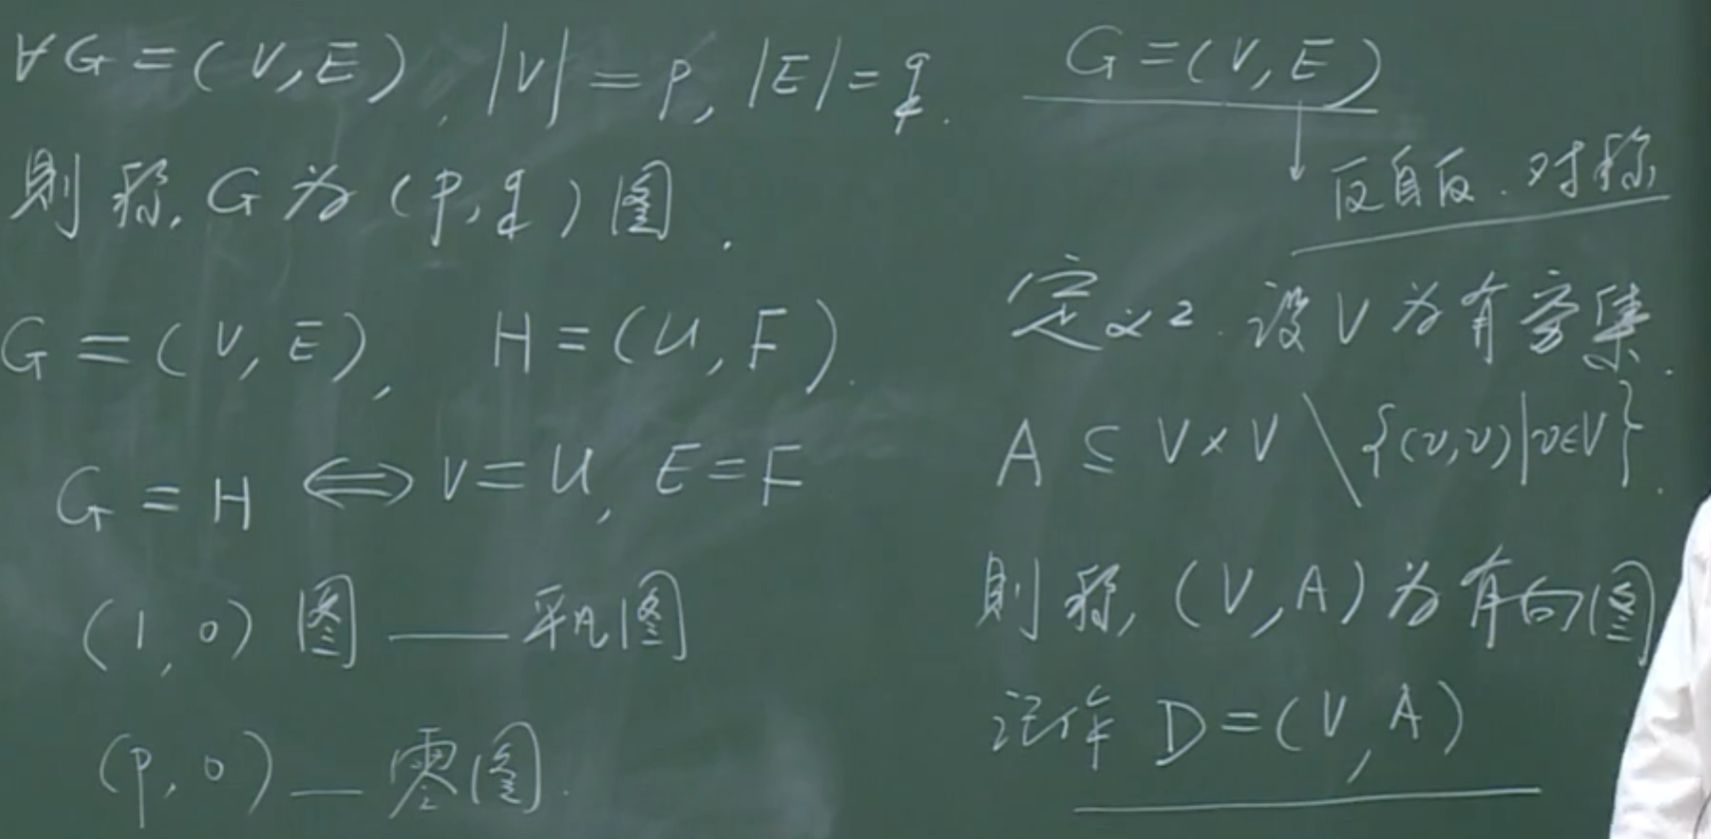 ∀G=(V,E), |V|=p, |E|=q.
则称, G为(p,q)图.
G=(V,E), H=(U,F).
G=H ⟺ V=U, E=F
(1,0)图——平凡图
(p,0)—零图.
G=(V,E)
↓反自反.对称
定义2.设V为有穷集.
A⊆V×V\{(v,v)|v∈V}.
则称,(V,A)为有向图
记作 D=(V,A)